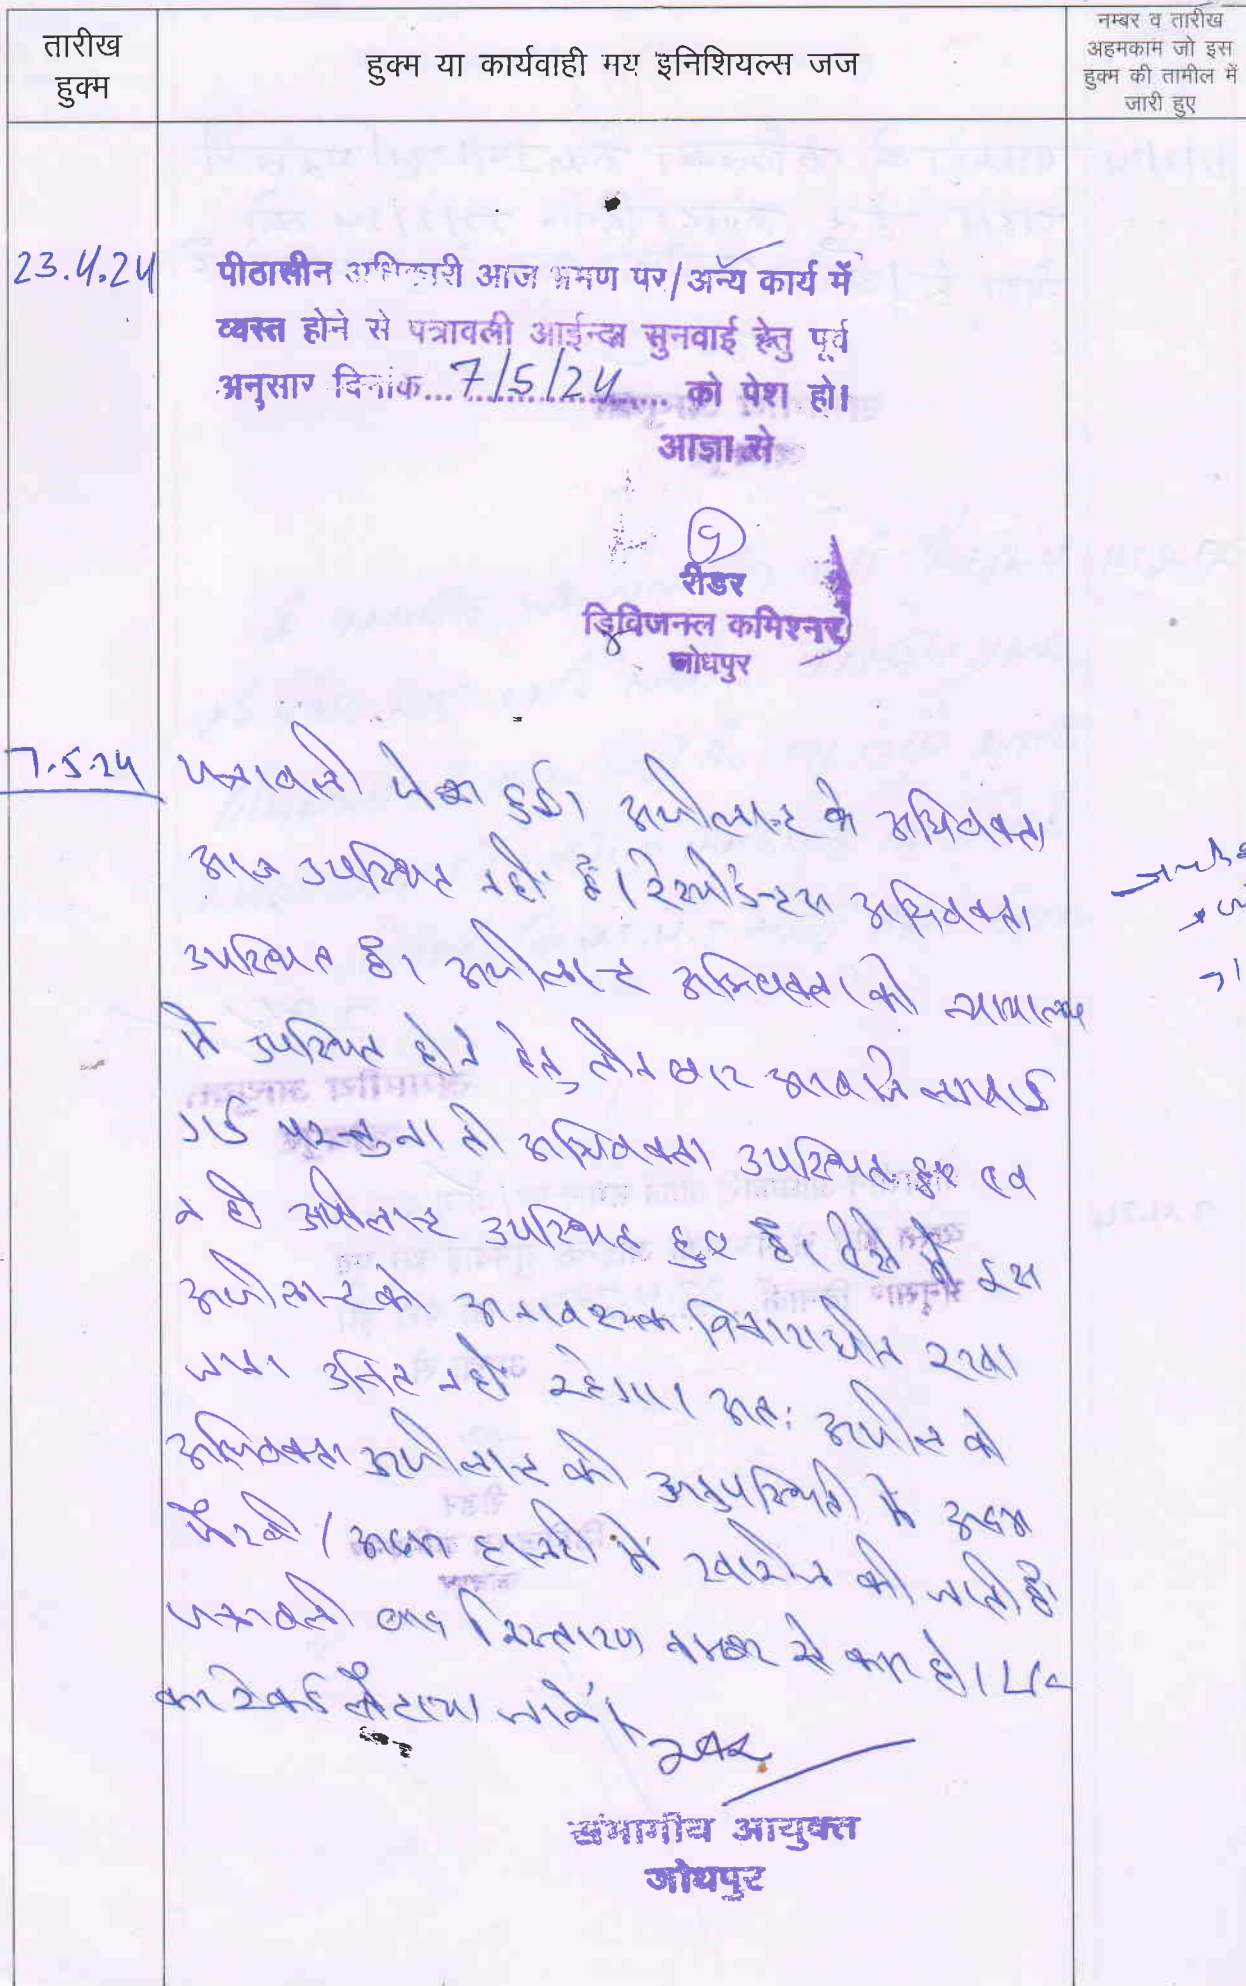 तारीख
हुक्म
हुक्म या कार्यवाही मय इनिशियल्स जज
नम्बर व तारीख
अहमकाम जो इस
हुक्म की तामील में
जारी हुए
23.4.24
पीठासीन अधिकारी आज भ्रमण पर/अन्य कार्य में
व्यस्त होने से पत्रावली आईन्दा सुनवाई हेतु पूर्व
अनुसार दिनांक... 7/5/24 ... को पेश हो।
आज्ञा से
रीडर
डिविजनल कमिश्नर
जोधपुर
7.5.24
पत्रावली पेश हुई। अपीलान्ट के अधिवक्ता
आज उपस्थित नहीं है। रेस्पोडेन्टस अधिवक्ता
उपस्थित है। अपीलान्ट अधिवक्ता को न्यायालय
में उपस्थित होने हेतु तीन बार आवाजे लगवाई
गई परन्तु ना तो अधिवक्ता उपस्थित हुए एवं
न ही अपीलान्ट उपस्थित हुए है। ऐसे में इस
अपीलान्ट को अनावश्यक विचाराधीन रखा
जाना उचित नहीं रहेगा। अतः अपील को
अधिवक्ता अपीलान्ट की अनुपस्थिती में अदम
पैरवी / अदम हाजरी में खारीज की जाती है।
पत्रावली बाद निस्तारण नम्बर से कम हो।
का रेकर्ड लौटाया जावें।
संभागीय आयुक्त
जोधपुर